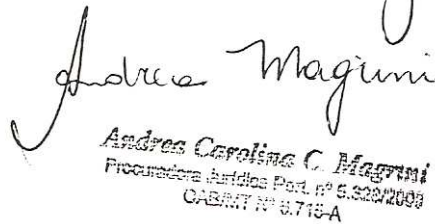 Andrea Magrini
Andrea Carolina C. Magrini
Procuradora Jurídica Port. nº 6.328/2009
OAB/MT Nº 8.715-A